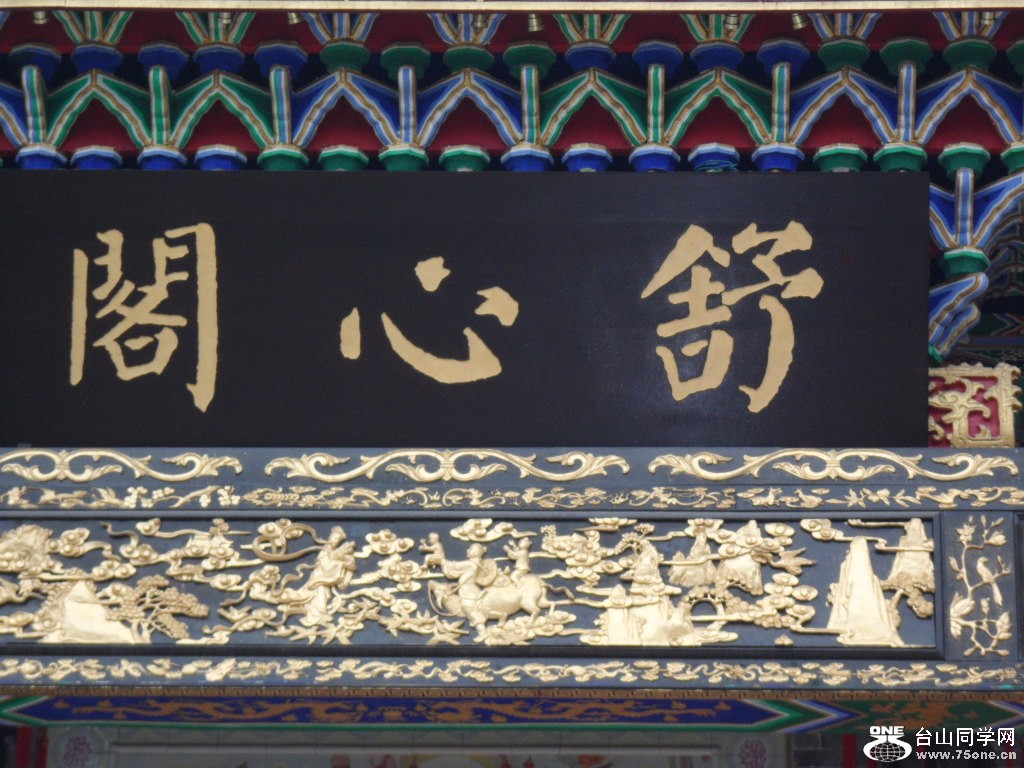 舒心閣
ONE
台山同学网
www.75one.cn